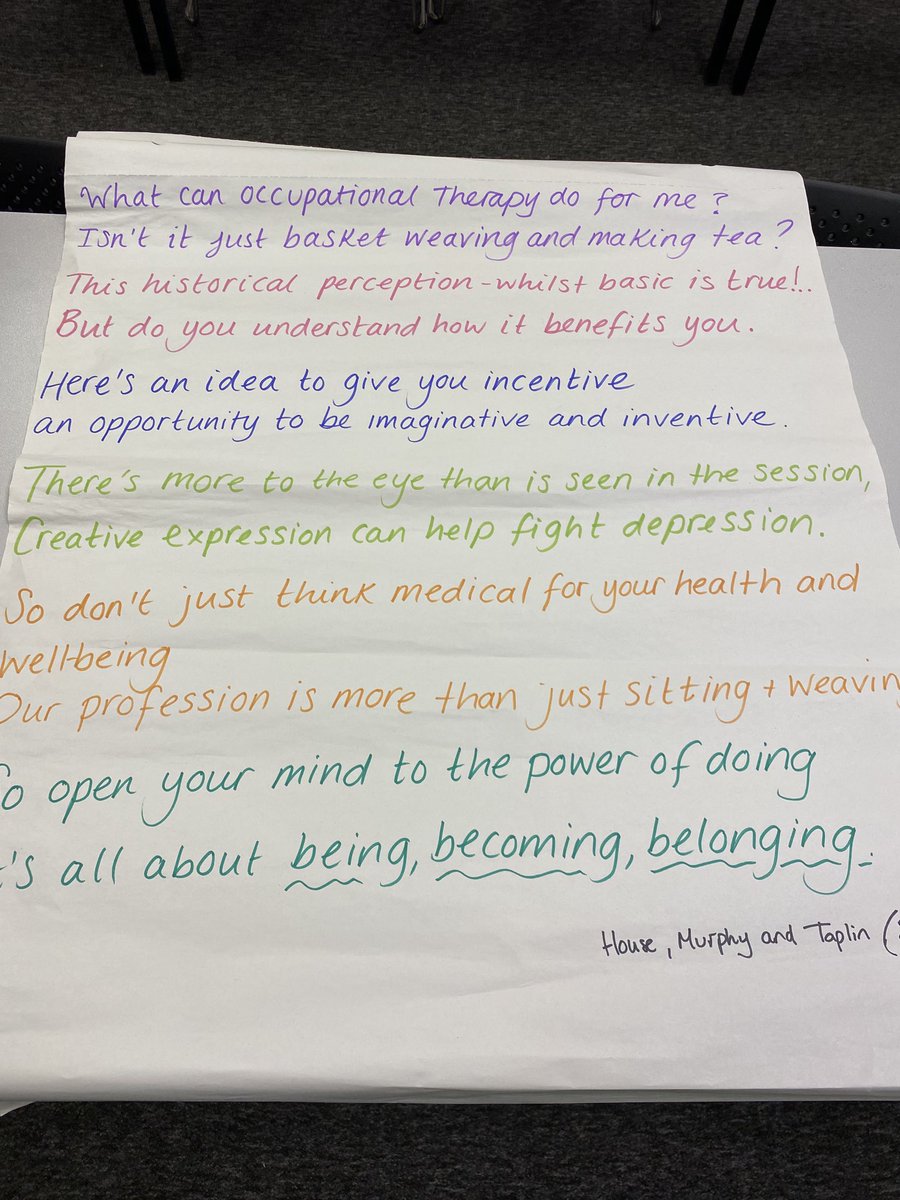 What can occupational Therapy do for me?
Isn't it just basket weaving and making tea?
This historical perception - whilst basic is true!..
But do you understand how it benefits you.
Here's an idea to give you incentive
an opportunity to be imaginative and inventive.
There's more to the eye than is seen in the session,
Creative expression can help fight depression.
So don't just think medical for your health and
wellbeing
Our profession is more than just sitting + weavin
So open your mind to the power of doing
t's all about being, becoming, belonging.
House, Murphy and Taplin (